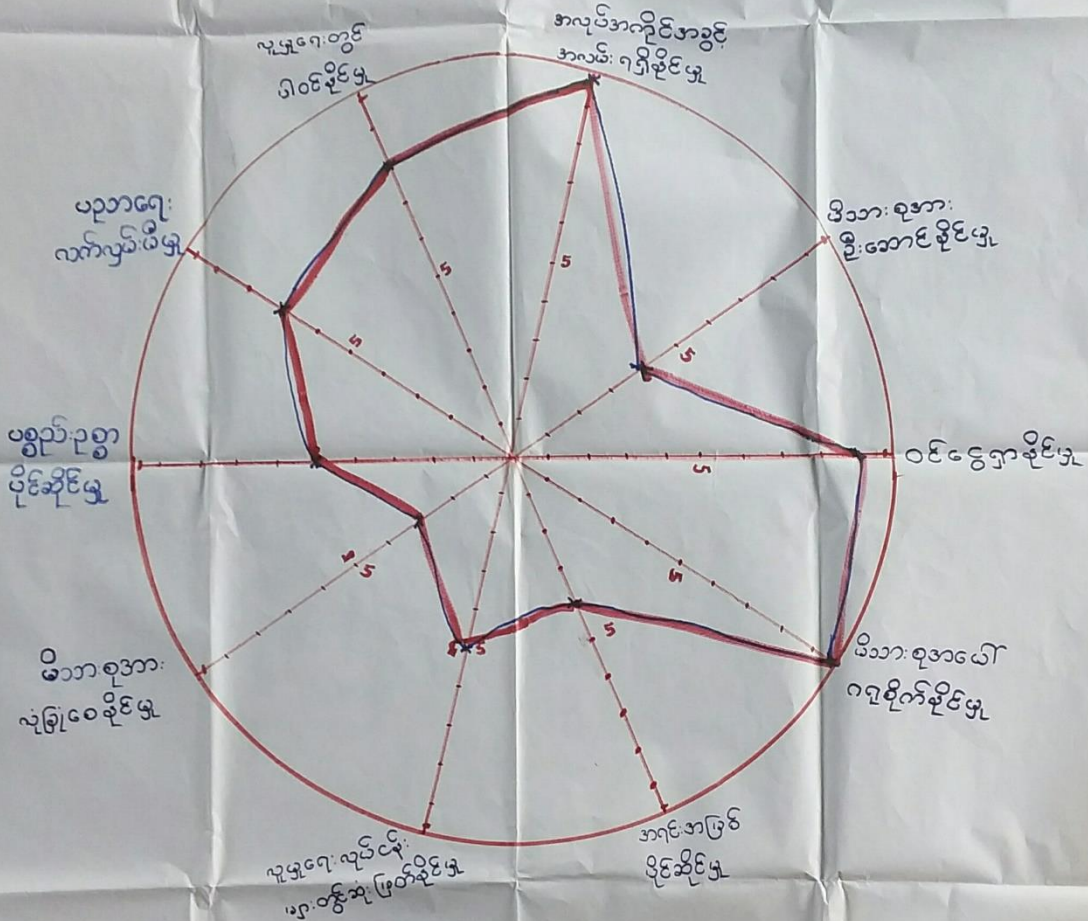 လူမှုရေးတွင်
ပါဝင်နိုင်မှု
အလုပ်အကိုင်အခွင့်
အလမ်းရရှိနိုင်မှု
မိသားစုအား
ဦးဆောင်နိုင်မှု
ဝင်ငွေရှာနိုင်မှု
မိသားစုအပေါ်
ဂရုစိုက်နိုင်မှု
အရင်းအမြစ်
ပိုင်ဆိုင်မှု
လူမှုရေးလုပ်ငန်း
များတွင်ဆုံးဖြတ်နိုင်မှု
မိသားစုအား
လုံခြုံစေနိုင်မှု
ပစ္စည်းဥစ္စာ
ပိုင်ဆိုင်မှု
ပညာရေး
လက်လှမ်းမီမှု
5
5
5
5
5
5
5
5
5
5